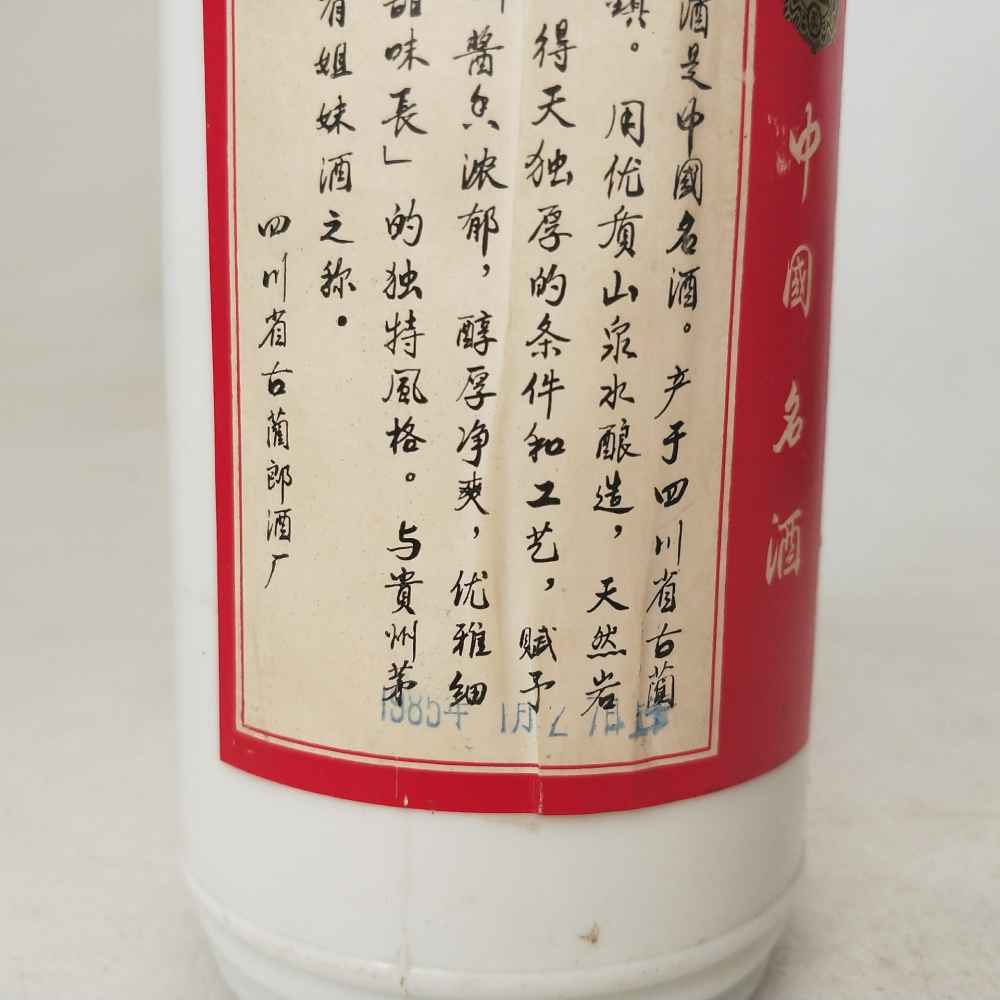 中國名酒
酒是中國名酒。产于四川省古蔺
镇。用优质山泉水酿造，天然岩
得天独厚的条件和工艺，赋予
酱香浓郁，醇厚净爽，优雅细
甜味長」的独特風格。与貴州茅
有姐妹酒之称。
四川省古蔺郎酒厂
1985年1月2